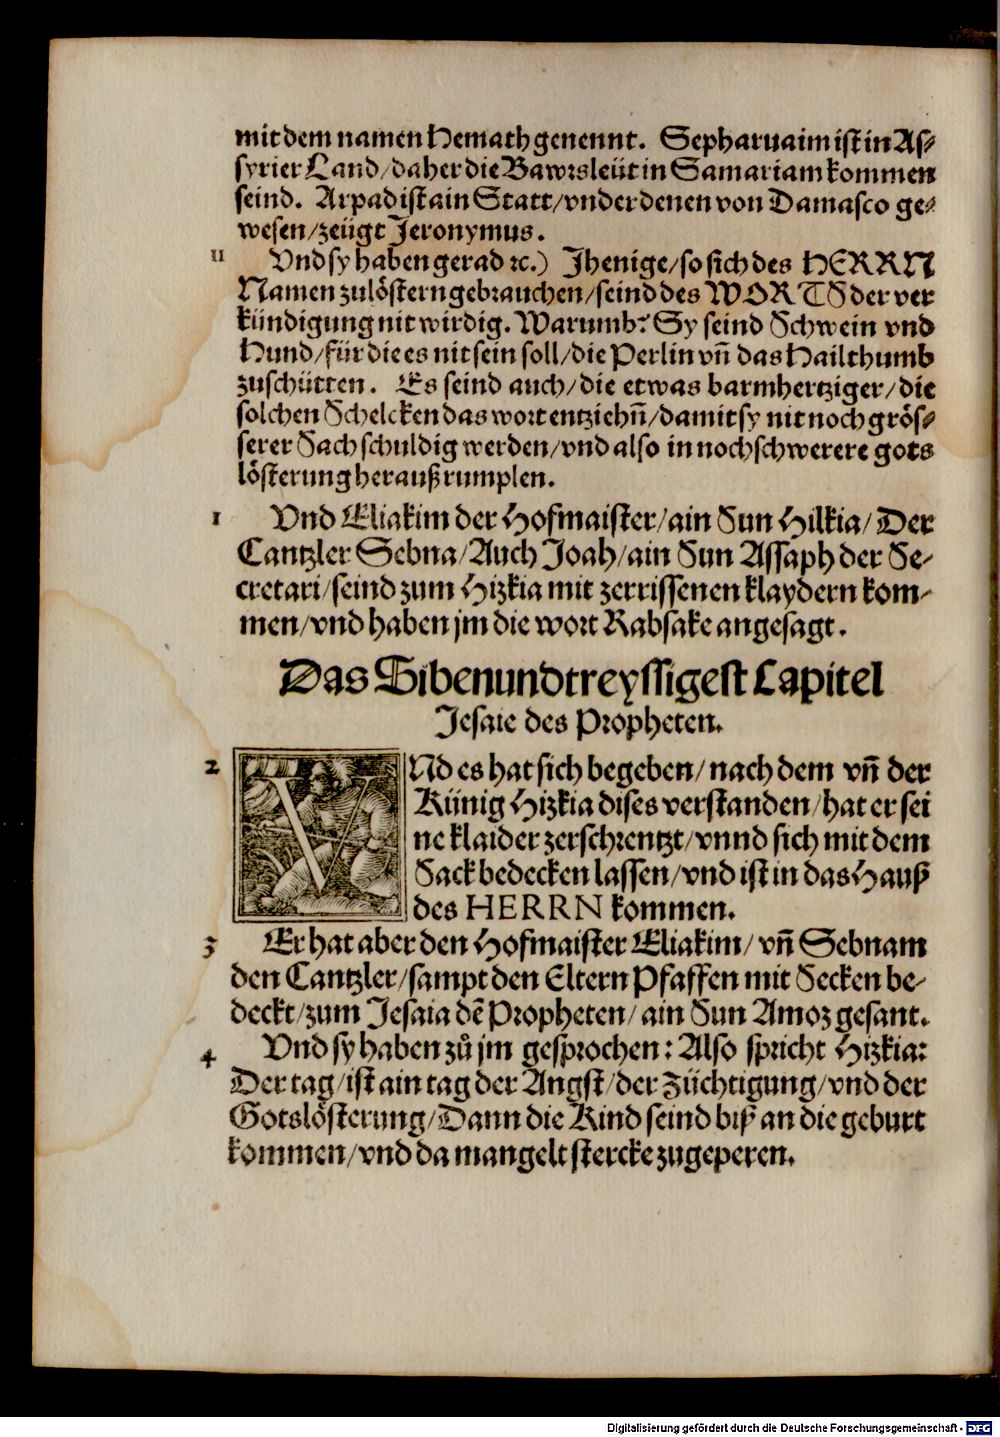 mit dem namen Hemath genennt. Sepharuaim ist in As⸗
syrier Land/ daher die Bawrsleüt in Samariam kommen
seind. Arpad ist ain Statt/ vnder denen von Damasco ge⸗
wesen/ zeügt Jeronymus.
11 Vnd sy haben gerad ꝛc.) Jhenige/ so sich des HERRN
Namen zulöstern gebrauchen/ seind des WORTS der ver
kündigung nit wirdig. Warumb? Sy seind Schwein vnd
Hund/ für die es nit sein soll/ die Perlin vñ das Hailthumb
zuschütten. Es seind auch/ die etwas barmhertziger/ die
solchen Schelcken das wort entziehñ/ damit sy nit noch grös⸗
serer Sach schuldig werden/ vnd also in noch schwerere gots
lösterung herauß rumplen.
1 Vnd Eliakim der Hofmaister/ ain Sun Hilkia/ Der
Cantzler Sebna/ Auch Joah/ ain Sun Assaph der Se⸗
cretari/ seind zum Hizkia mit zerrissenen klaydern kom⸗
men/ vnd haben jm die wort Rabsake angesagt.
Das Sibenundtreyssigest Capitel
Jesaie des Propheten.
2 VNd es hat sich begeben/ nach dem vñ der
Künig Hizkia dises verstanden/ hat er sei
ne klaider zerschrentzt/ vnnd sich mit dem
Sack bedecken lassen/ vnd ist in das Hauß
des HERRN kommen.
3 Er hat aber den Hofmaister Eliakim/ vñ Sebnam
den Cantzler/ sampt den Eltern Pfaffen mit Secken be⸗
deckt/ zum Jesaia dē Propheten/ ain Sun Amoz gesant.
4 Vnd sy haben zů jm gesprochen: Also spricht Hizkia:
Der tag/ ist ain tag der Angst/ der Züchtigung/ vnd der
Gotslösterung/ Dann die Kind seind biß an die geburt
kommen/ vnd da mangelt stercke zugeperen.
Digitalisierung gefördert durch die Deutsche Forschungsgemeinschaft - DFG